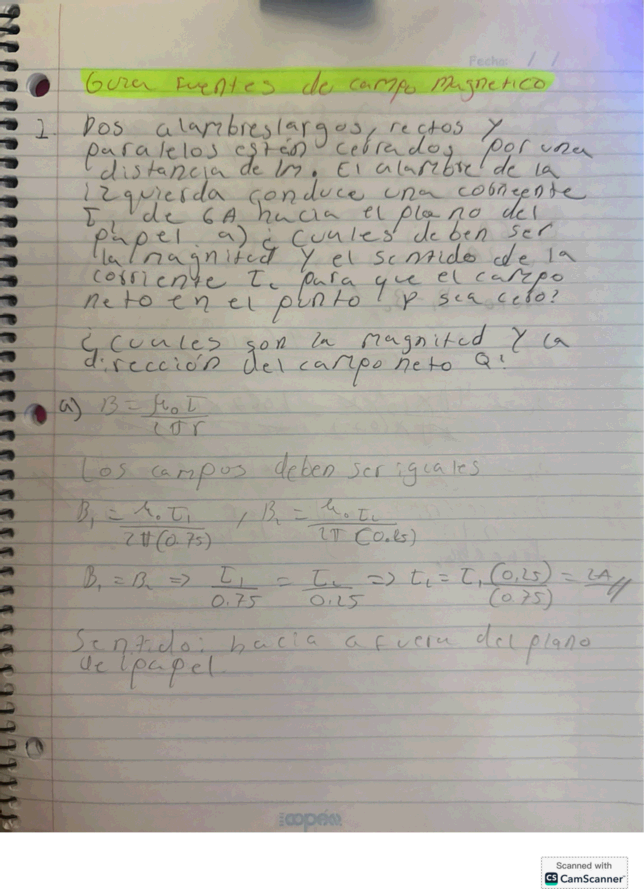 Fecha: / /
Guia Fuentes de campo magnetico
1. Dos alambres largos, rectos y
paralelos están cebrados por una
distancia de 1m. El alambre de la
izquierda conduce una corriente
I₁ de 6A hacia el plano del
papel. a) ¿cuales deben ser
la magnitud y el sentido de la
corriente I₂ para que el campo
neto en el punto P sea cero?
¿cuales son la magnitud y la
dirección del campo neto Q?
a) B = μ₀I / 2πr
Los campos deben ser iguales
B₁ = μ₀I₁ / 2π(0.75) , B₂ = μ₀I₂ / 2π(0.25)
B₁ = B₂ => I₁ / 0.75 = I₂ / 0.25 => I₂ = I₁ (0.25) / (0.75) = 2A
Sentido: hacia afuera del plano
del papel
copan
Scanned with
CS CamScanner